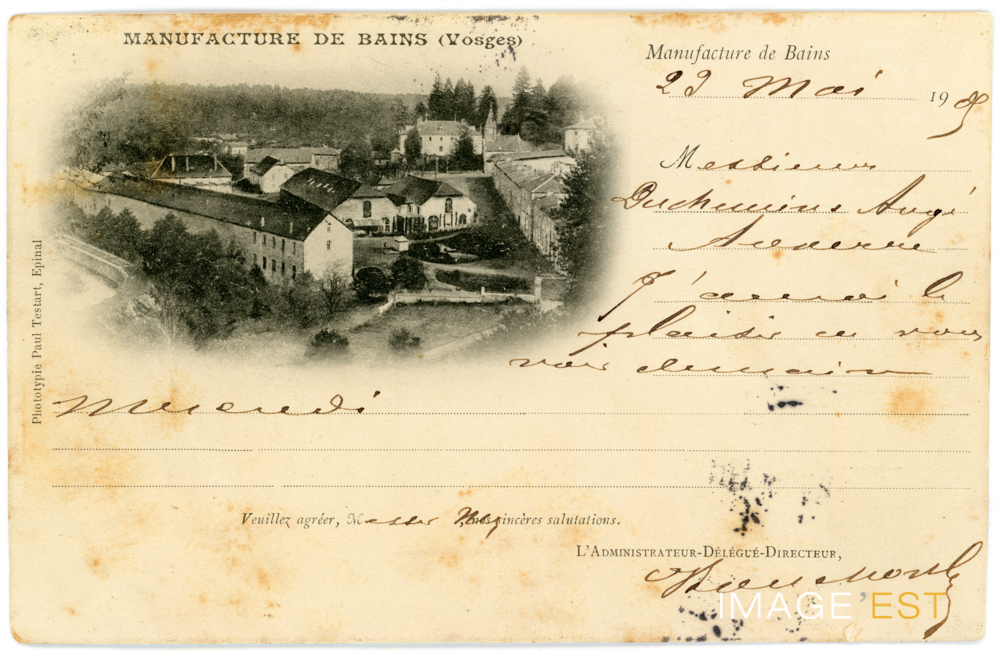 MANUFACTURE DE BAINS (Vosges)
Manufacture de Bains
23 Mai 19
Messieurs
Augé
Auxerre
J'aurai le
plaisir de vous
voir demain
Mercredi
Veuillez agréer, M mes sincères salutations.
L'ADMINISTRATEUR-DÉLÉGUÉ-DIRECTEUR,
Phototypie Paul Testart, Epinal
IMAGE'EST